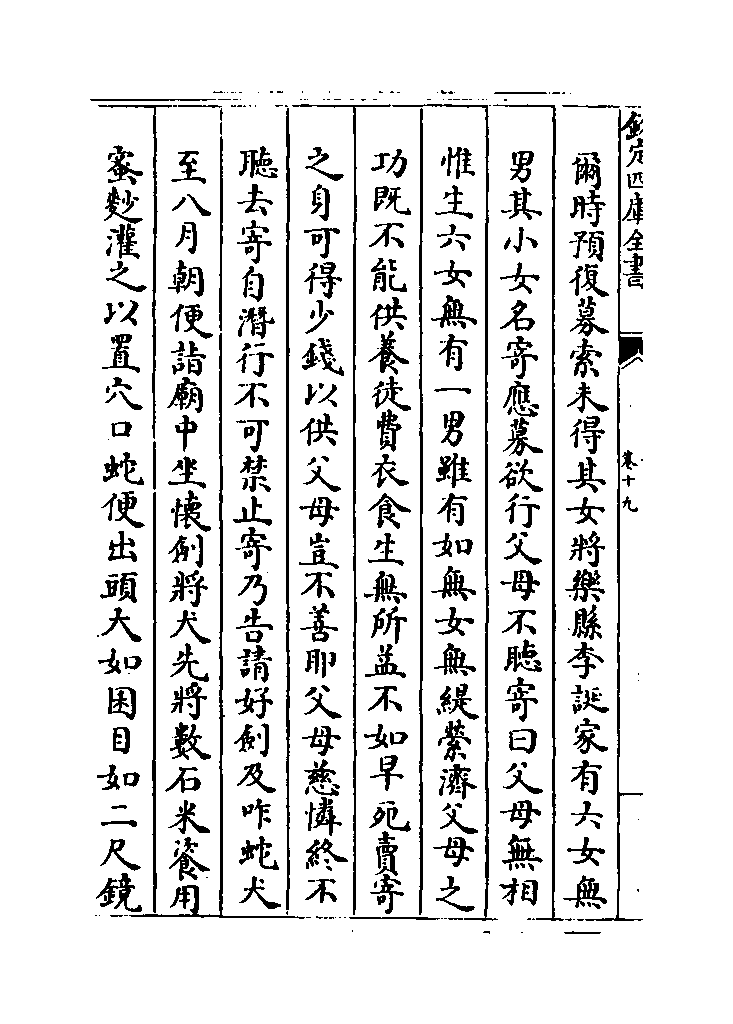 欽定四庫全書
卷十九
爾時預復募索未得其女將樂縣李誕家有六女無
男其小女名寄應募欲行父母不聽寄曰父母無相
惟生六女無有一男雖有如無女無緹縈濟父母之
功既不能供養徒費衣食生無所益不如早死賣寄
之身可得少錢以供父母豈不善耶父母慈憐終不
聽去寄自潛行不可禁止寄乃告請好劍及咋蛇犬
至八月朝便詣廟中坐懷劍將犬先將數石米餈用
蜜麨灌之以置穴口蛇便出頭大如囷目如二尺鏡